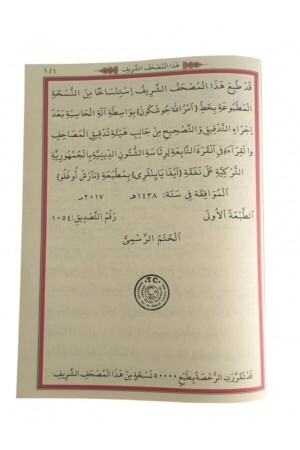 هٰذَا الْمُصْحَفُ الشَّرِيفُ
١/٤
قَدْ طُبِعَ هٰذَا الْمُصْحَفُ الشَّرِيفُ اِسْتِنْسَاخًا مِنَ النُّسْخَةِ
الْمَطْبُوعَةِ بِخَطِّ (اَمْرُ اللّٰهِ جُوشْكُونْ) بِوَاسِطَةِ آلَةِ الْحَاسِبَةِ بَعْدَ
اِجْرَاءِ التَّدْقِيقِ وَالتَّصْحِيحِ مِنْ جَانِبِ هَيْئَةِ تَدْقِيقِ الْمَصَاحِفِ
وَالْقِرَاءَةِ فِي اَنْقَرَةَ التَّابِعَةِ لِرِئَاسَةِ الشُّئُونِ الدِّينِيَّةِ بِالْجُمْهُورِيَّةِ
التُّرْكِيَّةِ عَلَى نَفَقَةِ (آيْفَا يَايِنْلَرِي) بِمَطْبَعَةِ (مَارْش اُوغْلُو)
الْمُوَافِقَةِ فِي سَنَةِ: ١٤٣٨هـ ٢٠١٧مـ
اَلطَّبْعَةُ الْاُولٰى رَقْمُ التَّصْدِيقِ: ١٠٥٤
اَلْخَتْمُ الرَّسْمِيُّ
T.C.
قَدْ تَقَرَّرَتِ الرُّخْصَةُ بِطَبْعِ ٥٠٠٠٠ نُسْخَةٍ مِنْ هٰذَا الْمُصْحَفِ الشَّرِيفِ